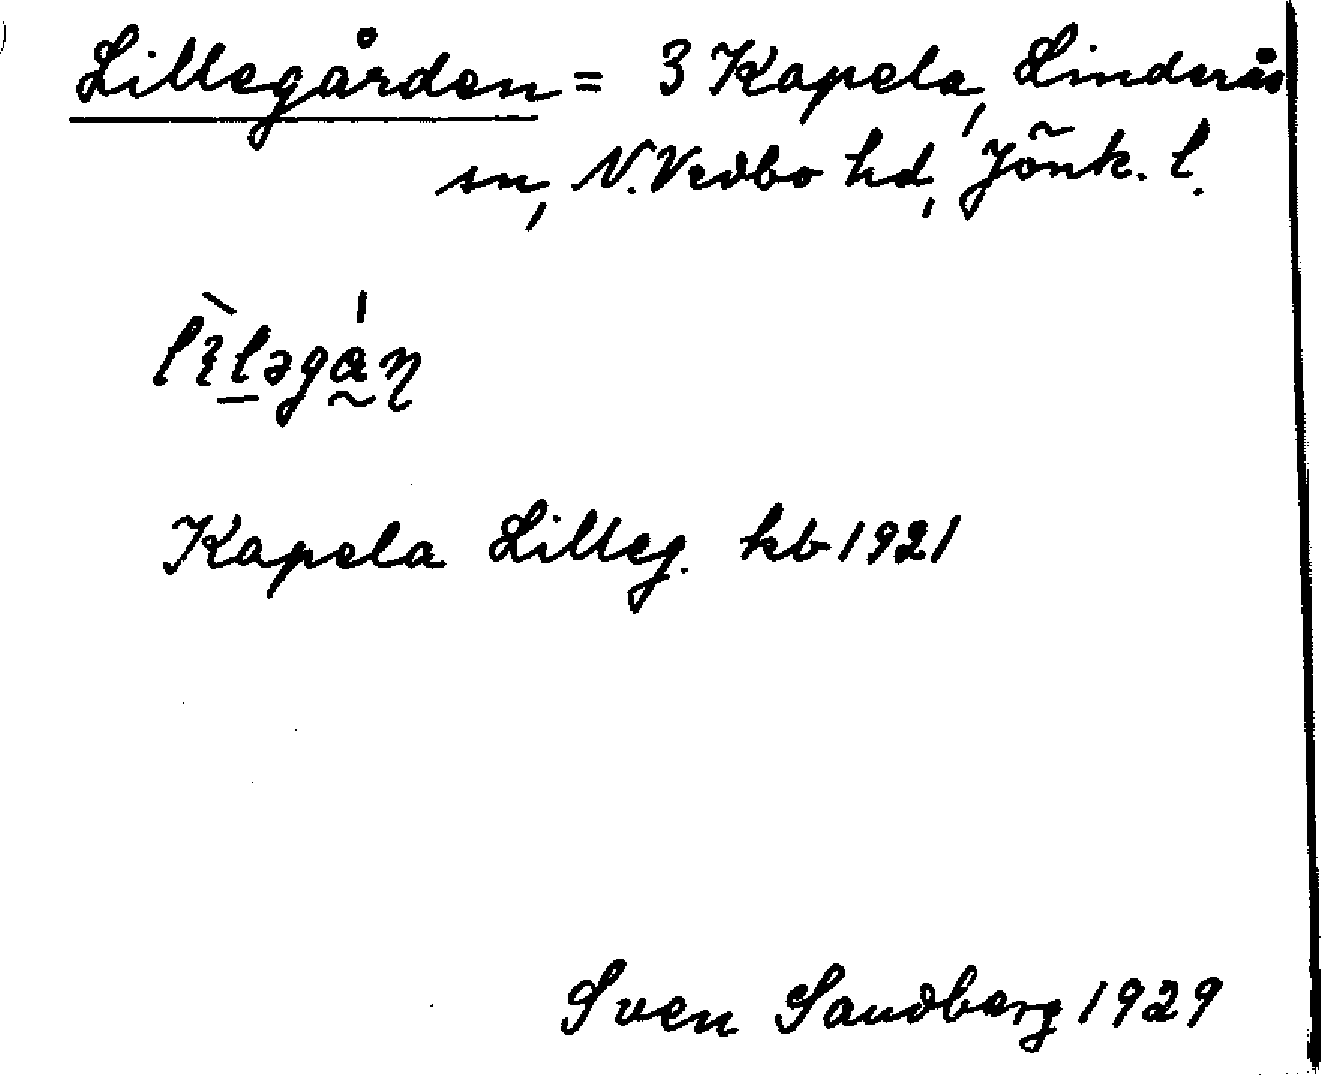 Lillegården = 3 Kapela, Linderås
sn, N. Vedbo hd, Jönk. l.
lìləgán
Kapela Lilleg. kb 1921
Sven Sandberg 1929